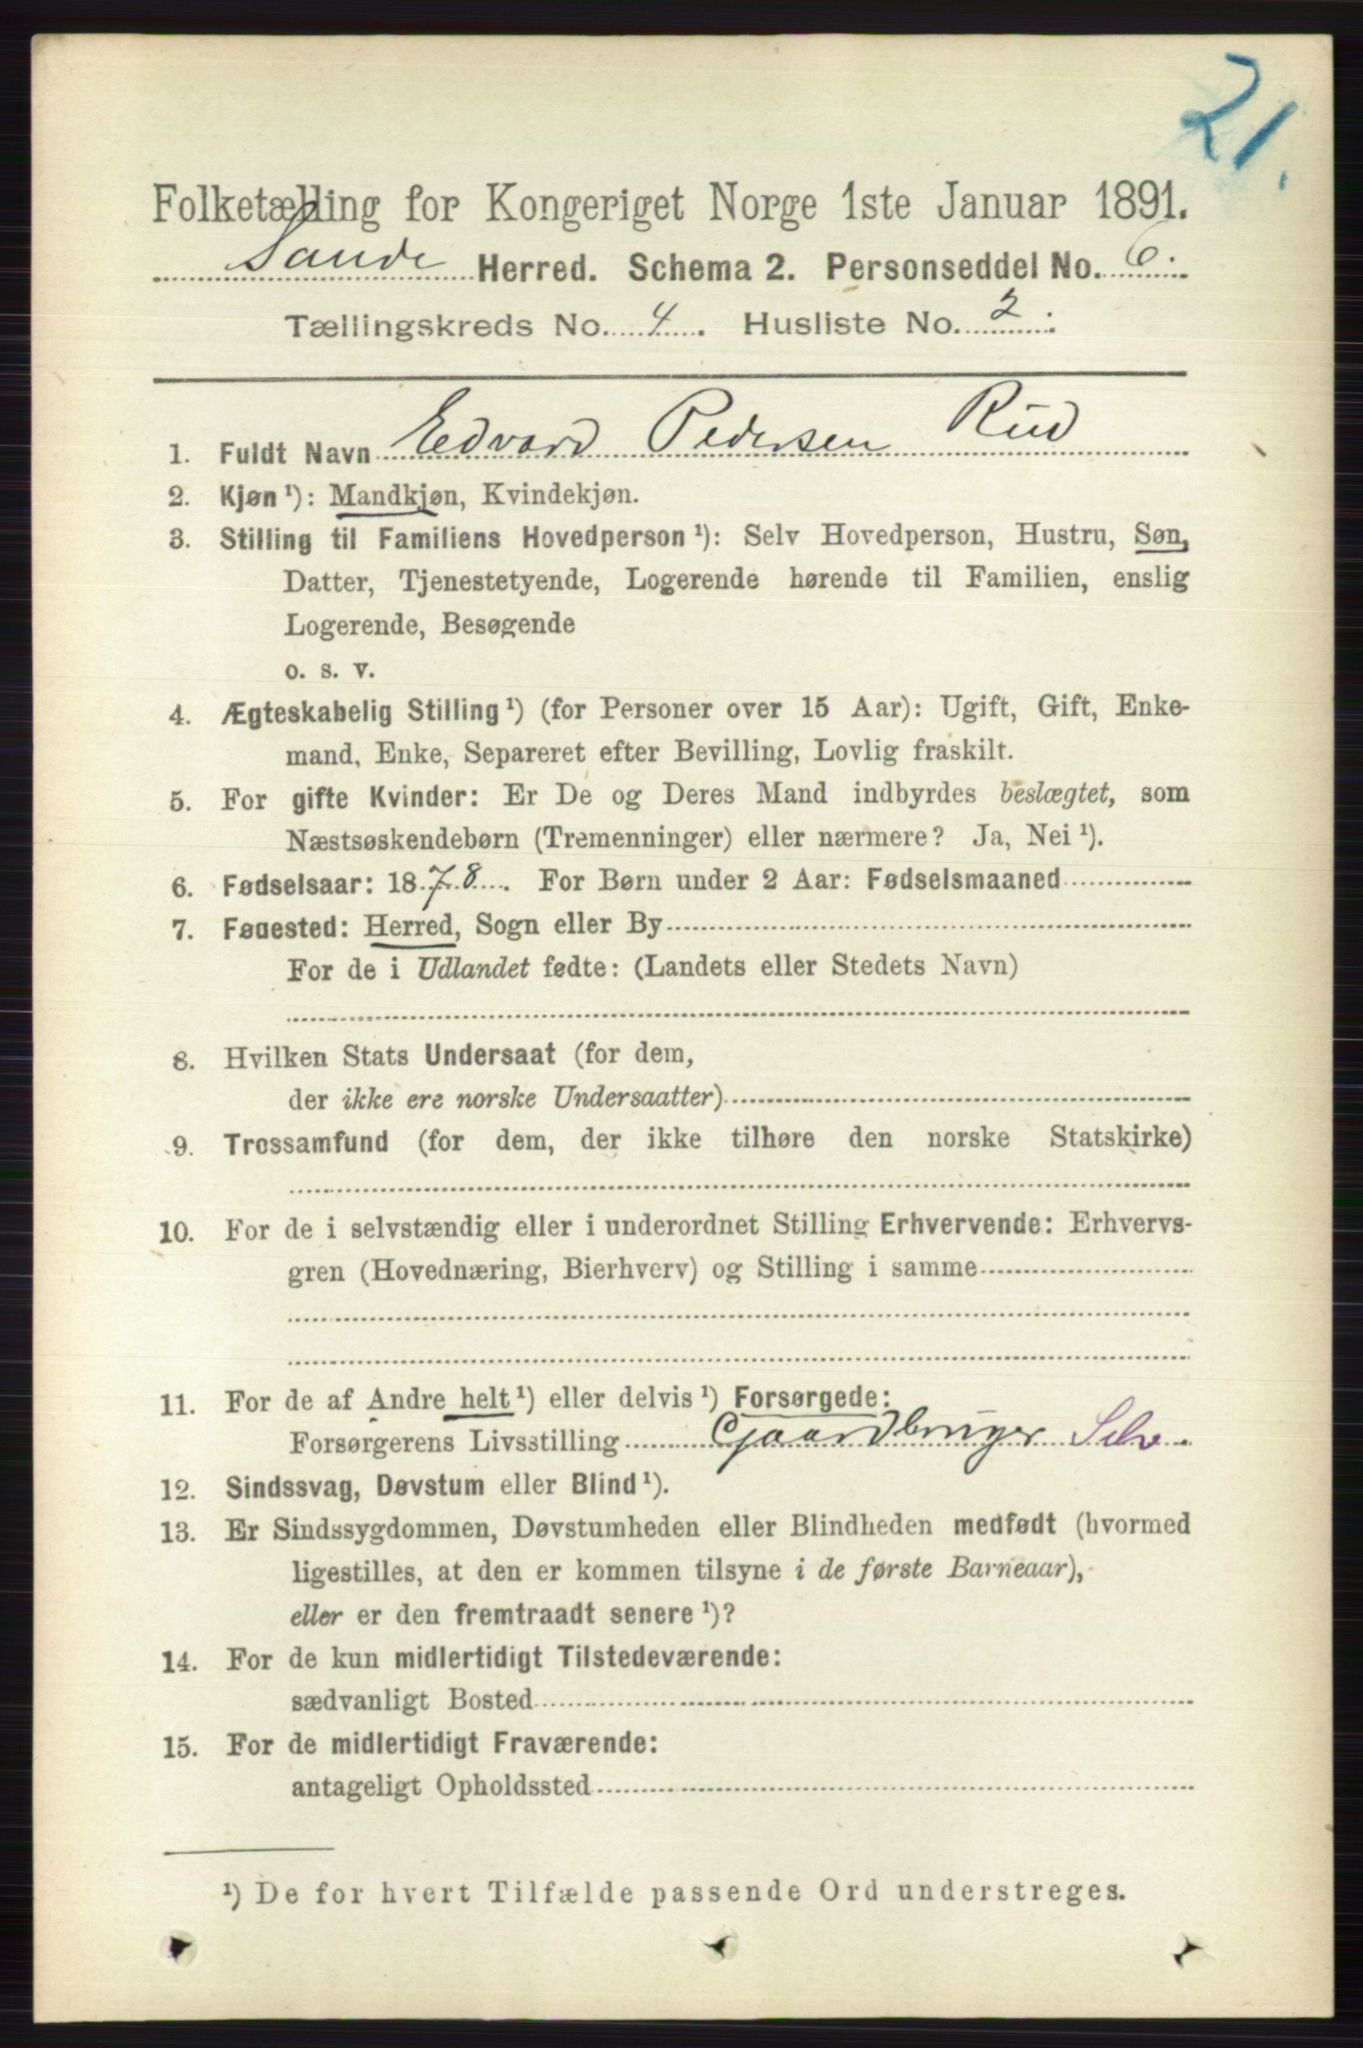 21.
Folketælling for Kongeriget Norge 1ste Januar 1891.
Sande Herred. Schema 2. Personseddel No. 6.
Tællingskreds No. 4. Husliste No. 2.
1. Fuldt Navn Edvard Pedersen Rud
2. Kjøn ¹): Mandkjøn, Kvindekjøn.
3. Stilling til Familiens Hovedperson ¹): Selv Hovedperson, Hustru, Søn,
Datter, Tjenestetyende, Logerende hørende til Familien, enslig
Logerende, Besøgende
o. s. v.
4. Ægteskabelig Stilling ¹) (for Personer over 15 Aar): Ugift, Gift, Enke-
mand, Enke, Separeret efter Bevilling, Lovlig fraskilt.
5. For gifte Kvinder: Er De og Deres Mand indbyrdes beslægtet, som
Næstsøskendebørn (Tremenninger) eller nærmere? Ja, Nei ¹).
6. Fødselsaar: 1878. For Børn under 2 Aar: Fødselsmaaned
7. Fødested: Herred, Sogn eller By
For de i Udlandet fødte: (Landets eller Stedets Navn)
8. Hvilken Stats Undersaat (for dem,
der ikke ere norske Undersaatter)
9. Trossamfund (for dem, der ikke tilhøre den norske Statskirke)
10. For de i selvstændig eller i underordnet Stilling Erhvervende: Erhvervs-
gren (Hovednæring, Bierhverv) og Stilling i samme
11. For de af Andre helt ¹) eller delvis ¹) Forsørgede:
Forsørgerens Livsstilling Gaardbruger Selv.
12. Sindssvag, Døvstum eller Blind ¹).
13. Er Sindssygdommen, Døvstumheden eller Blindheden medfødt (hvormed
ligestilles, at den er kommen tilsyne i de første Barneaar),
eller er den fremtraadt senere ¹)?
14. For de kun midlertidigt Tilstedeværende:
sædvanligt Bosted
15. For de midlertidigt Fraværende:
antageligt Opholdssted
¹) De for hvert Tilfælde passende Ord understreges.